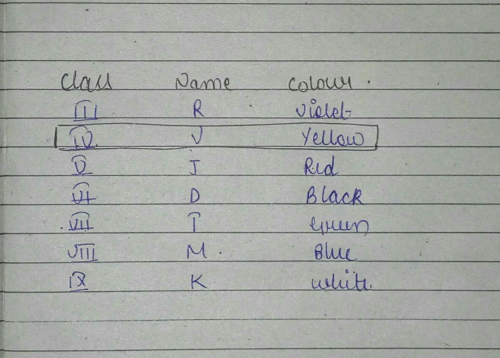 Class Name Colour.
III R Violet
IV V Yellow
V J Red
VI D Black
VII T Green
VIII M. Blue
IX K white.